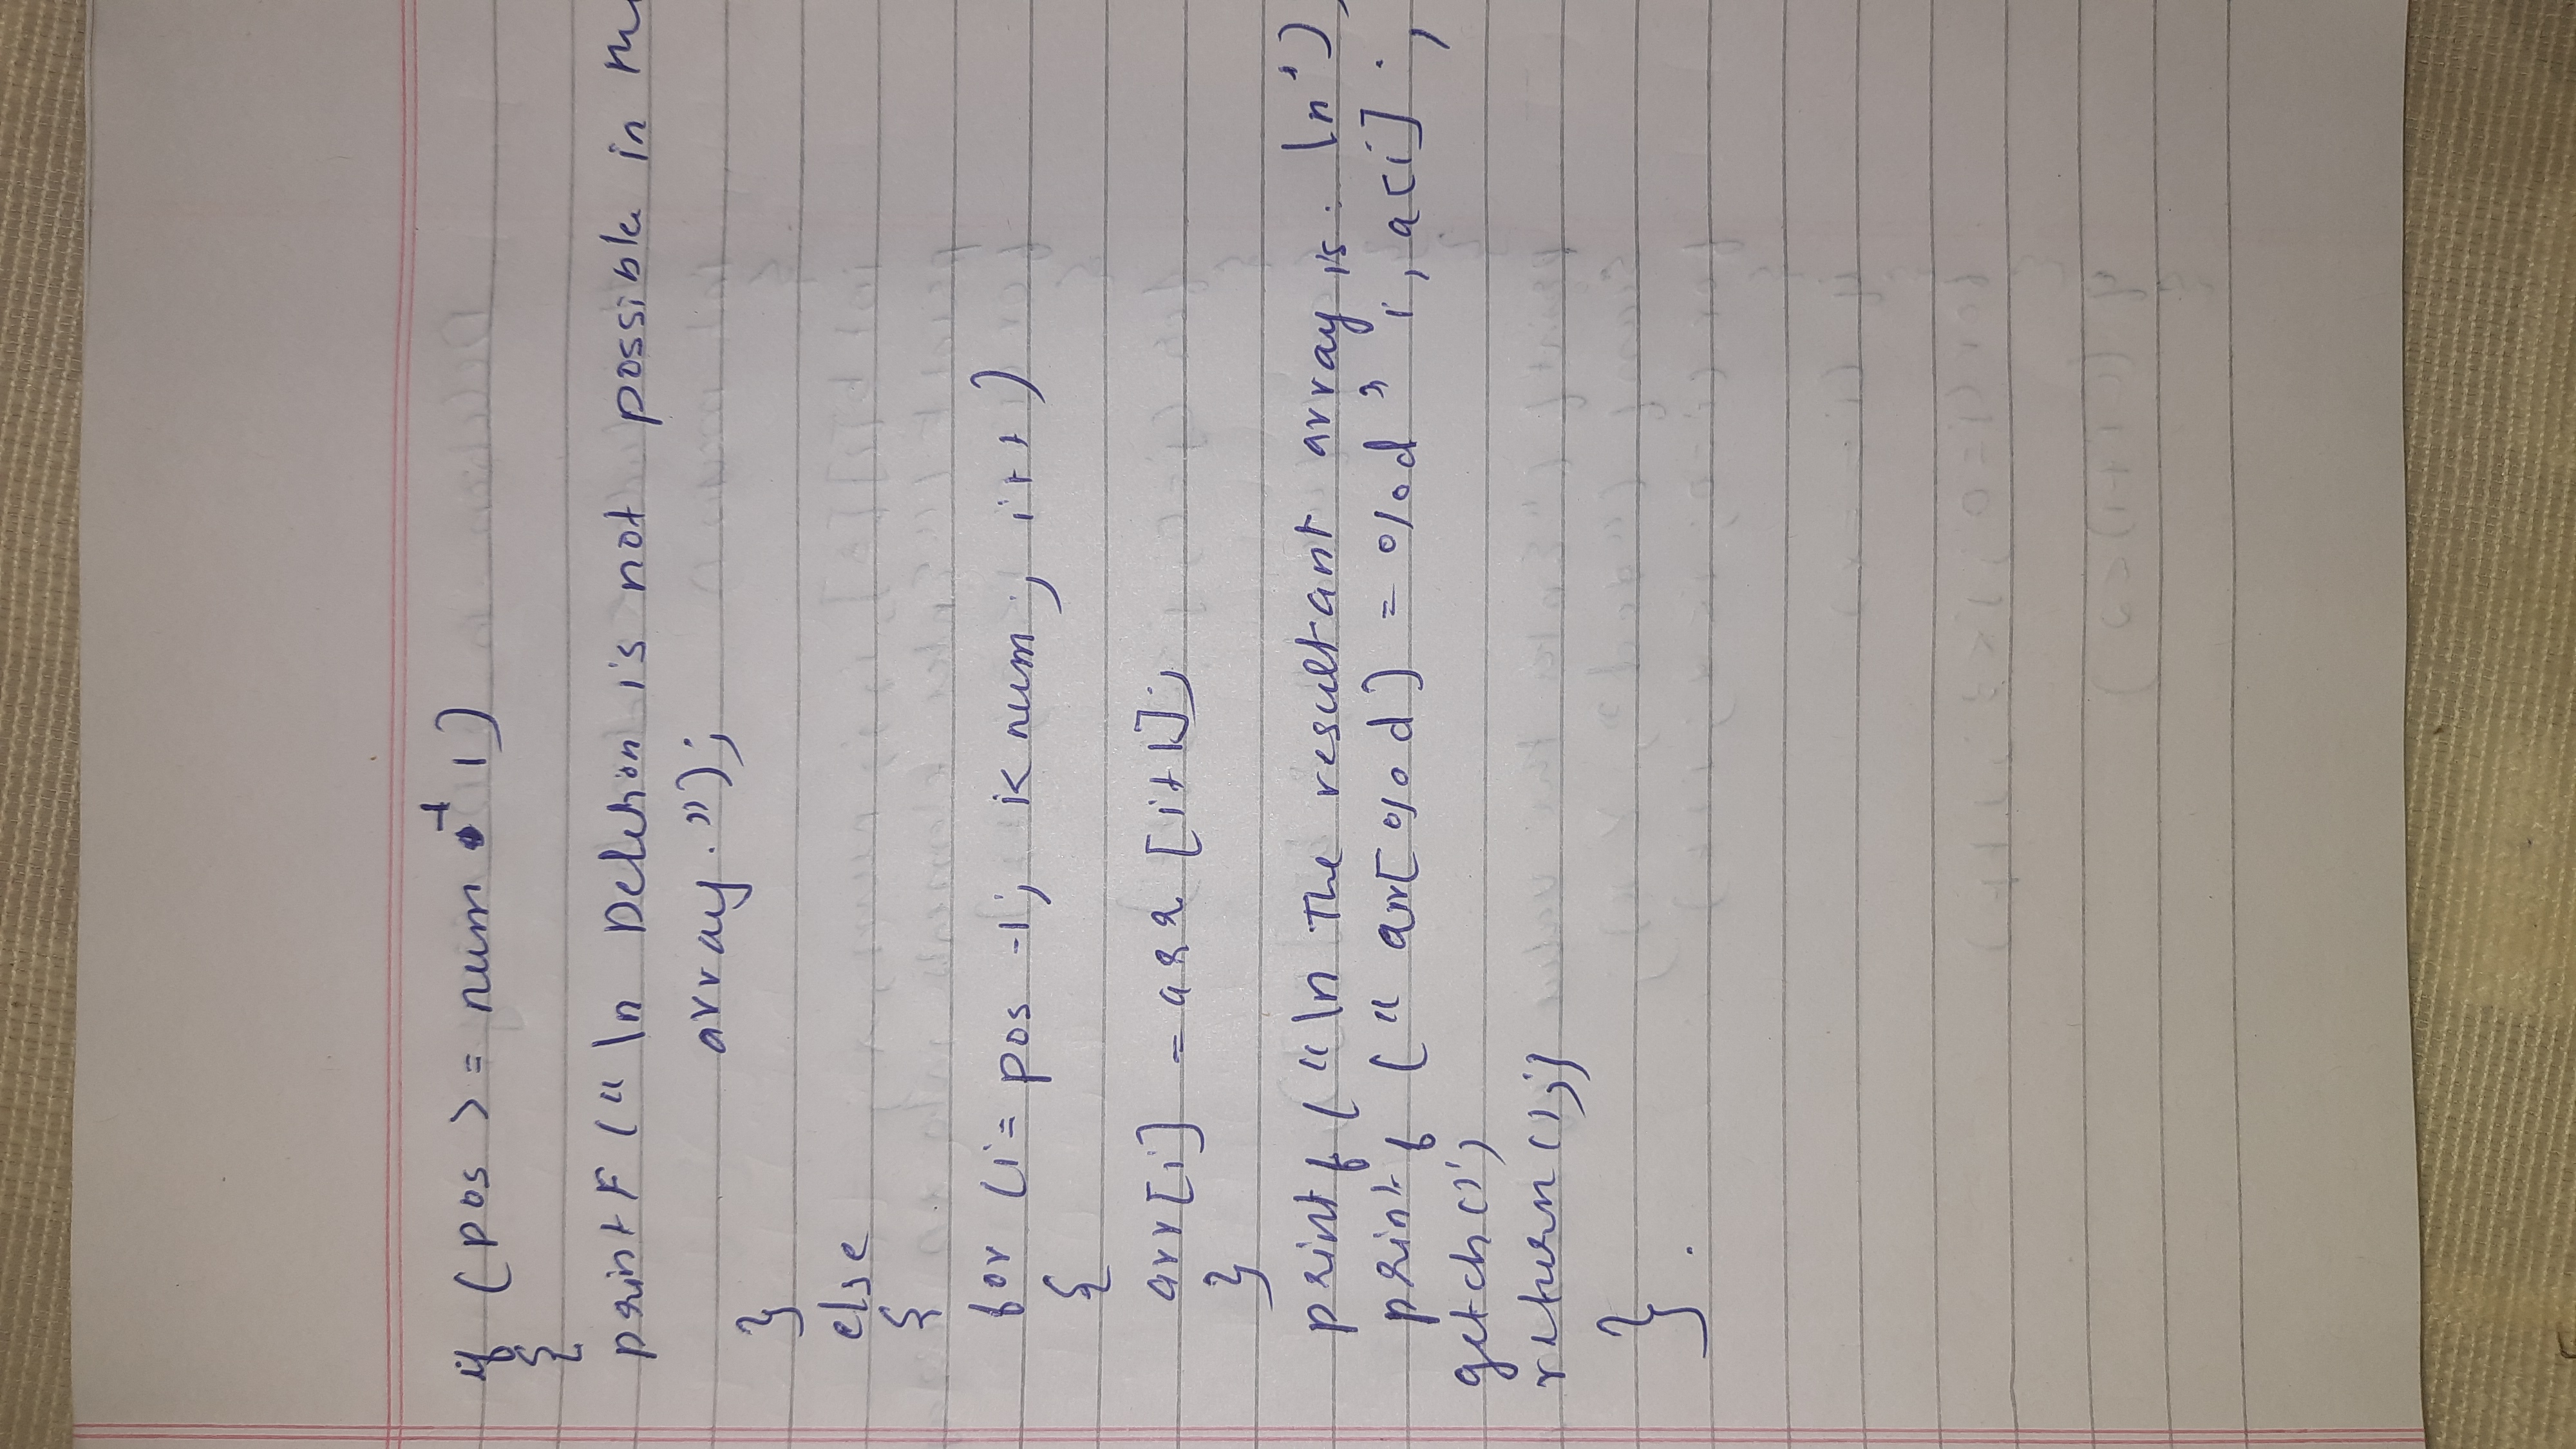 if (pos >= num + 1)
{
printF (“ \n Deletion is not possible in the
array.”);
}
else
{
for (i = pos -1; i< num ; i++ )
{
arr[i] = arr [i+1];
}
printf (“\n The resultant array is : \n')
printf (“ arr[%d] = %d ” i, a[i] ;
getch();
return();}
}.